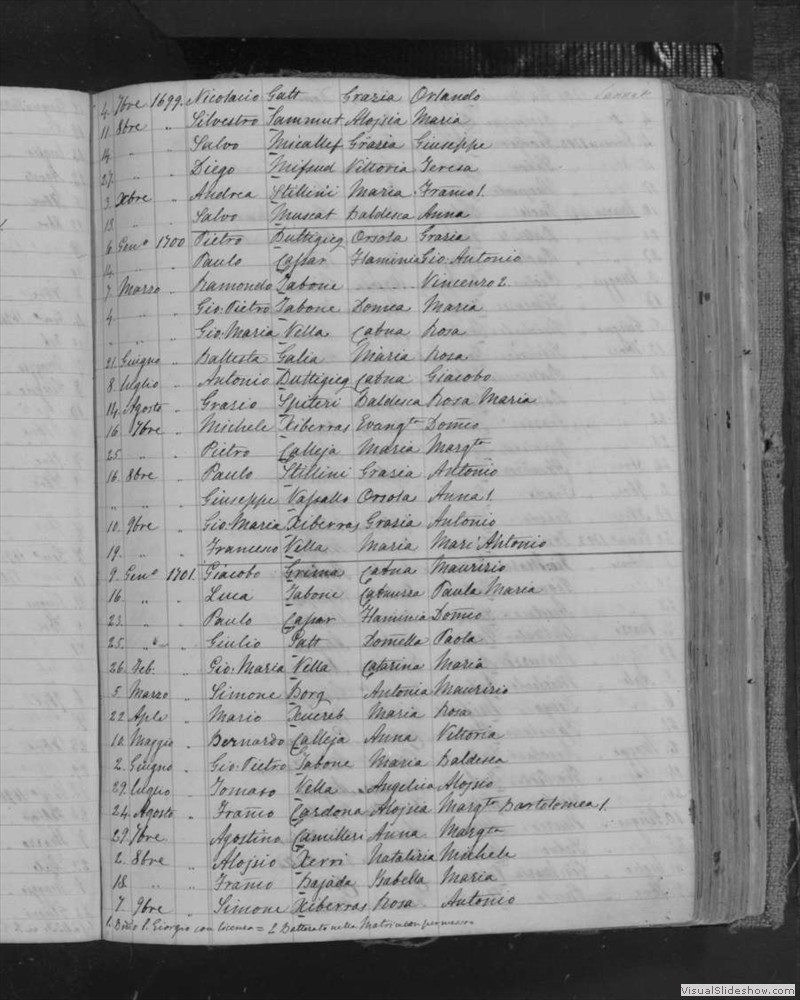 4. 7bre 1699. Nicolacio Gatt Grazia Orlando
11. 8bre " Silvestro Sammut Alojsia Maria
14. " " Salvo Micallef Grazia Giuseppe
27. " " Diego Mifsud Vittoria Teresa
3. Xbre " Andrea Stillini Maria Franco 1.
13. " " Salvo Muscat Baldesca Anna
6. Geno 1700 Pietro Buttigieg Orsola Grazia
14. " " Paulo Caspar Flaminia Gio: Antonio
7. Marzo " Ramondo Tabone ....... Vincenzo 2.
4. " " Gio: Pietro Tabone Domca Maria
" " " Gio: Maria Vella Catna Rosa
21. Giugno " Battista Galia Maria Rosa
8. luglio " Antonio Buttigieg Catna Giacobo
14. Agosto " Grazio Spiteri Baldesca Rosa Maria
16. 7bre " Michele Xiberras Evangta Domco
25. " " Pietro Calleja Maria Margta
16. 8bre " Paulo Stillini Grazia Antonio
" " " Giuseppe Vassallo Orsola Anna 1.
10. 9bre " Gio: Maria Xiberras Grazia Antonio
19. " " Francesco Vella Maria Mari' Antonio
9. Geno 1701. Giacobo Grima Catna Maurizio
16. " " Luca Tabone Catnuzza Paula Maria
23. " " Paulo Caspar Flaminia Domco
25. " " Giulio Gatt Domella Paola
26. Feb. " Gio: Maria Vella Catarina Maria
5. Marzo " Simone Borg Antonia Maurizio
22. Aple " Mario Xuereb Maria Rosa
10. Maggio " Bernardo Calleja Anna Vittoria
2. Giugno " Gio: Pietro Tabone Maria Baldesca
29. luglio " Tomaso Vella Angelica Alojsio
24. Agosto " Franco Cardona Alojsia Margta Bartolomea 1.
29. 7bre " Agostino Camilleri Anna Margta
2. 8bre " Alojsio Xerri Natalizia Michele
18. " " Franco Bajada Isabella Maria
7. 9bre " Simone Xiberras Rosa Antonio
1. S. Giorgio con licenza = 2. Battezato nella Matrice con permesso
VisualSlideshow.com